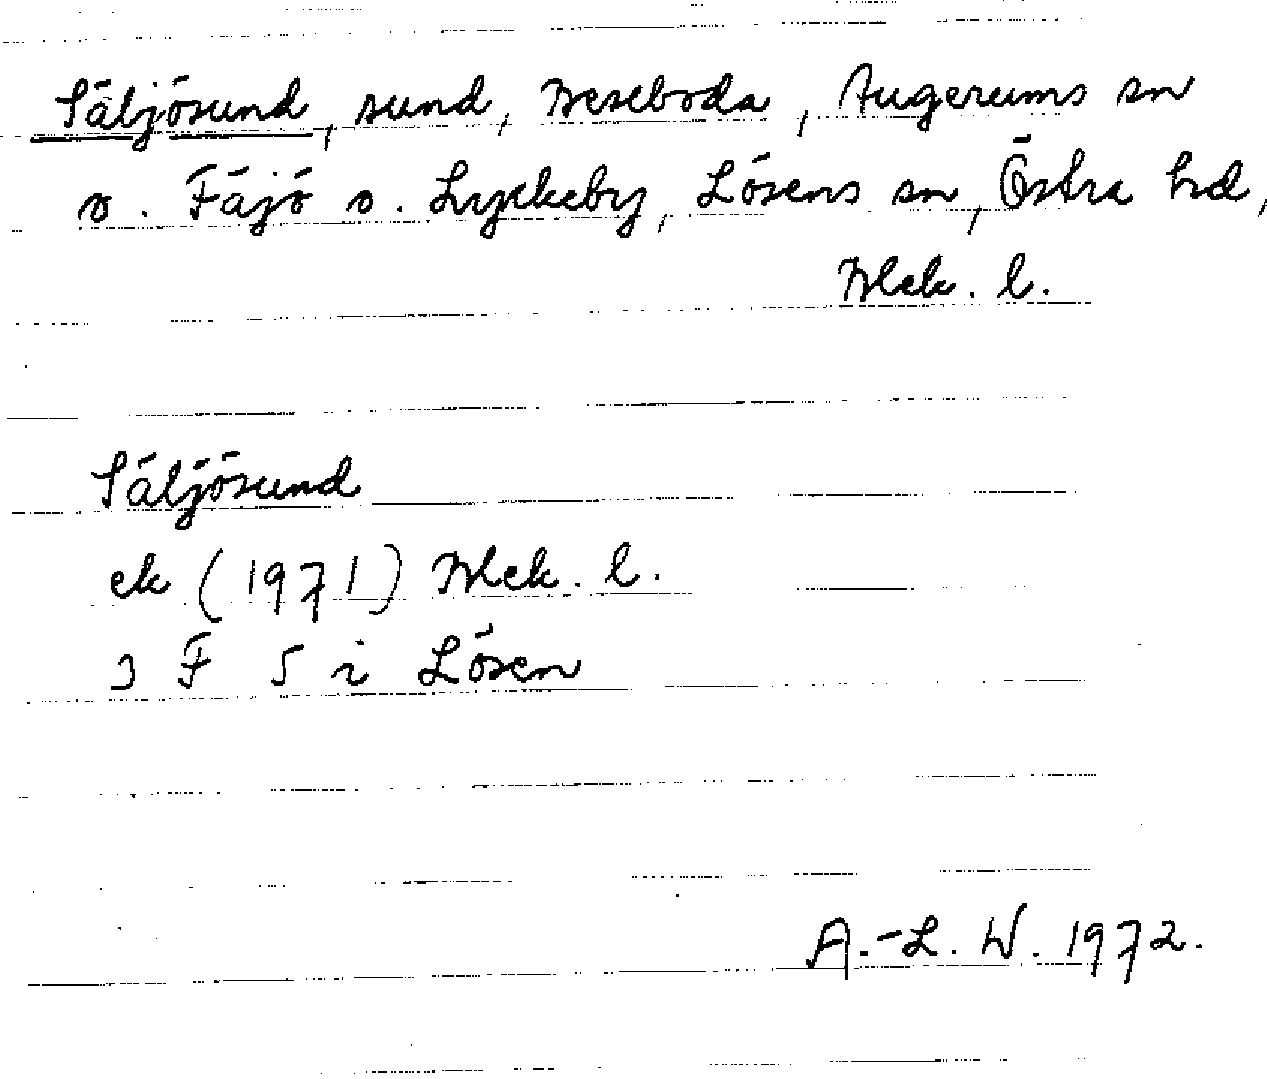 Säljösund, sund, Beseboda, Augerums sn
o. Fäjö o. Lyckeby, Lösens sn, Östra hd,
Blek. l.
Säljösund
ek (1971) Blek. l.
3 F 5 i Lösen
A.-L. W. 1972.